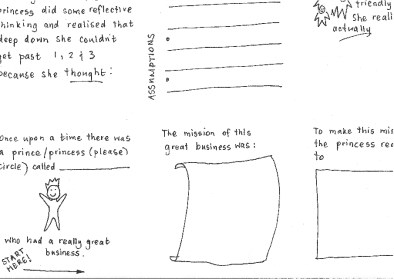 Princess did some reflective
thinking and realised that
deep down she couldn't
get past 1, 2 & 3
because she thought:
ASSUMPTIONS
friendly
she reali
actually
Once upon a time there was
a prince/princess (please
circle) called
who had a really great
business.
START
HERE!
The mission of this
great business was:
To make this mis
the princess rea
to